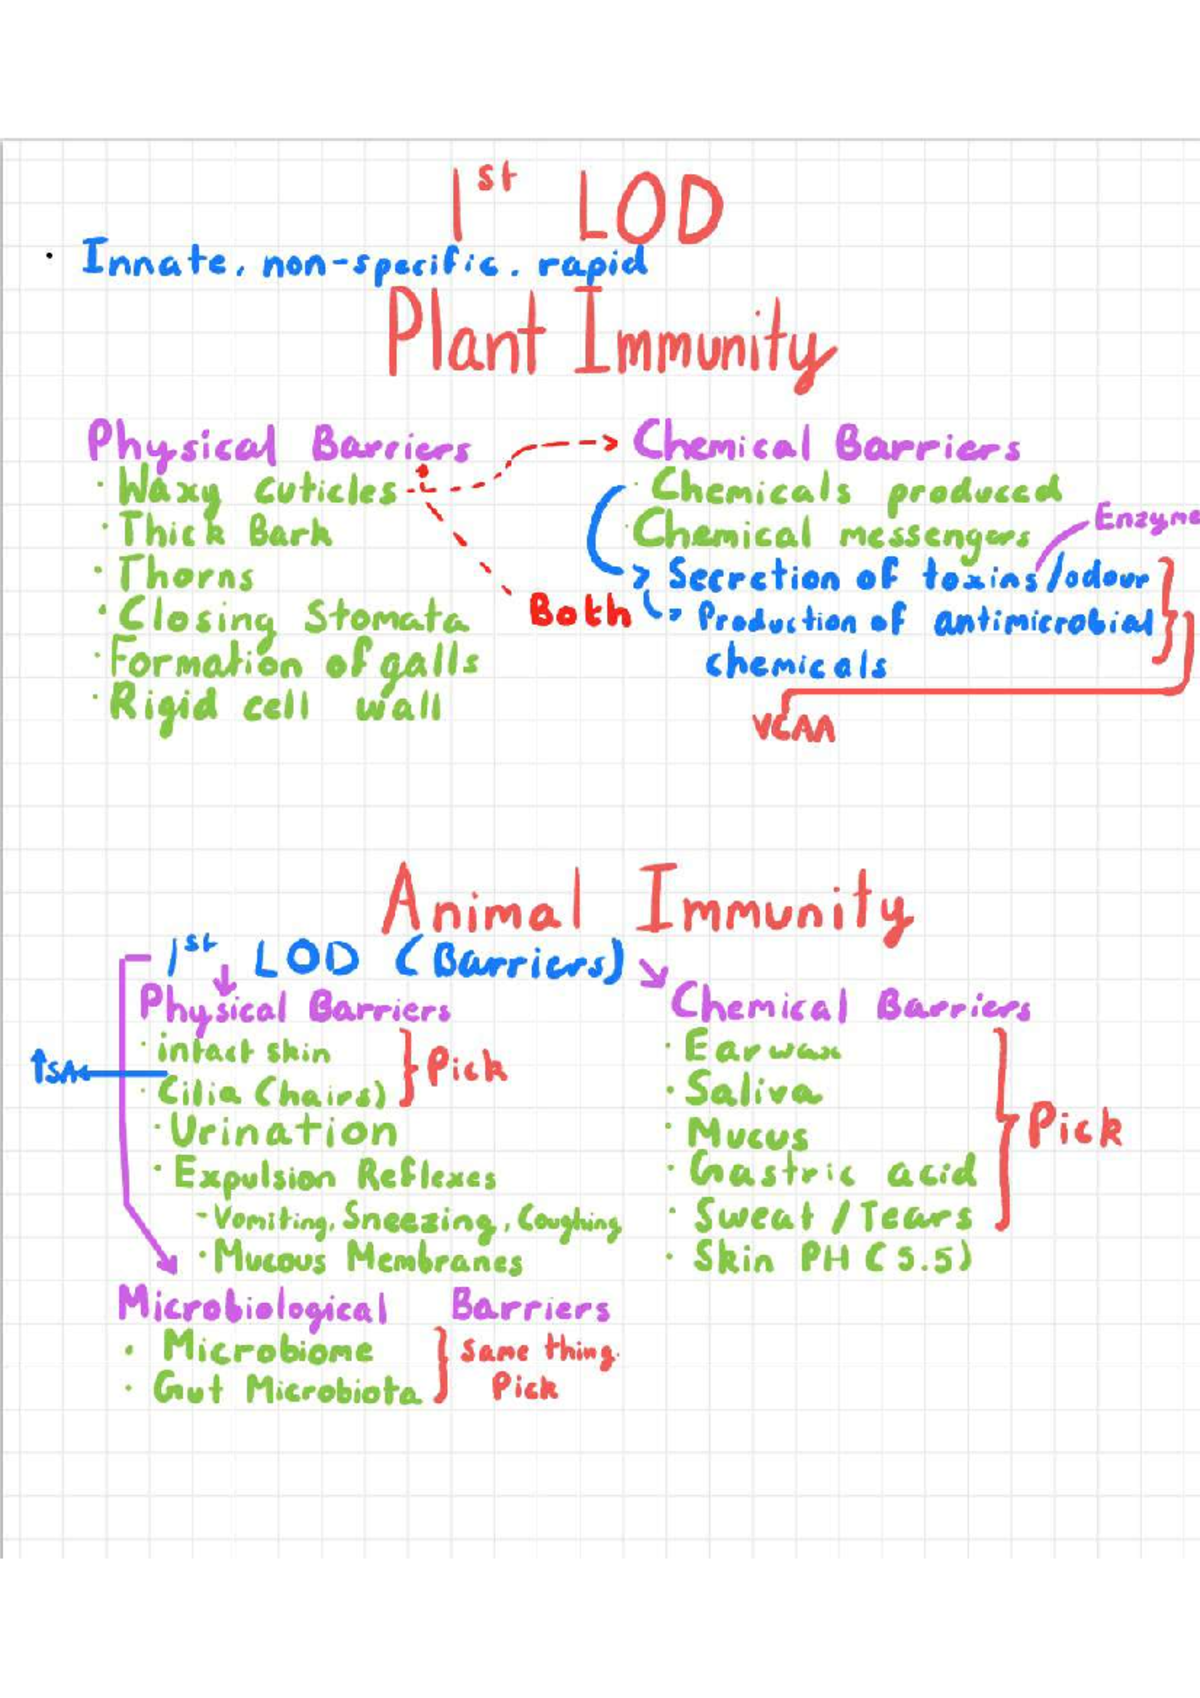 1st LOD
· Innate, non-specific. rapid
Plant Immunity
Physical Barriers
· Waxy cuticles
· Thick Bark
· Thorns
· Closing Stomata
· Formation of galls
· Rigid cell wall
Both
Chemical Barriers
· Chemicals produced
· Chemical messengers
Enzyme
Secretion of toxins/odour
Production of antimicrobial
chemicals
VCAA
Animal Immunity
1st LOD (Barriers)
Physical Barriers
· intact skin
· Cilia (hairs)
Pick
↑SA
· Urination
· Expulsion Reflexes
- Vomiting, Sneezing, Coughing
· Mucous Membranes
Chemical Barriers
· Earwax
· Saliva
· Mucus
· Gastric acid
· Sweat / Tears
· Skin PH (5.5)
Pick
Microbiological Barriers
· Microbiome
· Gut Microbiota
Same thing.
Pick